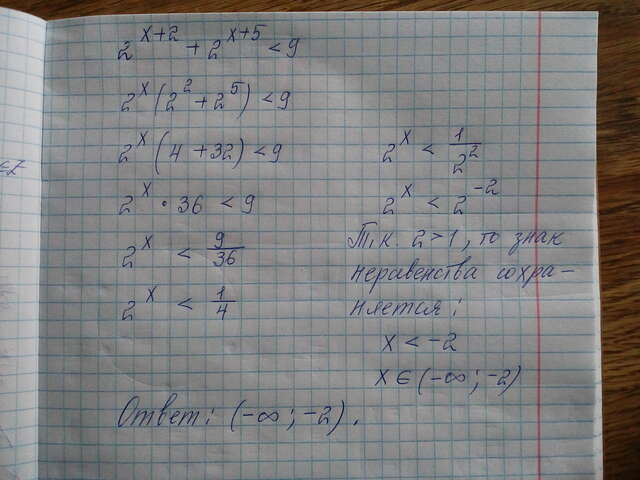 2^(x+2) + 2^(x+5) < 9
2^x (2^2 + 2^5) < 9
2^x (4 + 32) < 9
2^x · 36 < 9
2^x < 9/36
2^x < 1/4
2^x < 1/2^2
2^x < 2^(-2)
Т.к. 2>1, то знак
неравенства сохра-
няется:
x < -2
x ∈ (-∞; -2)
Ответ: (-∞; -2).